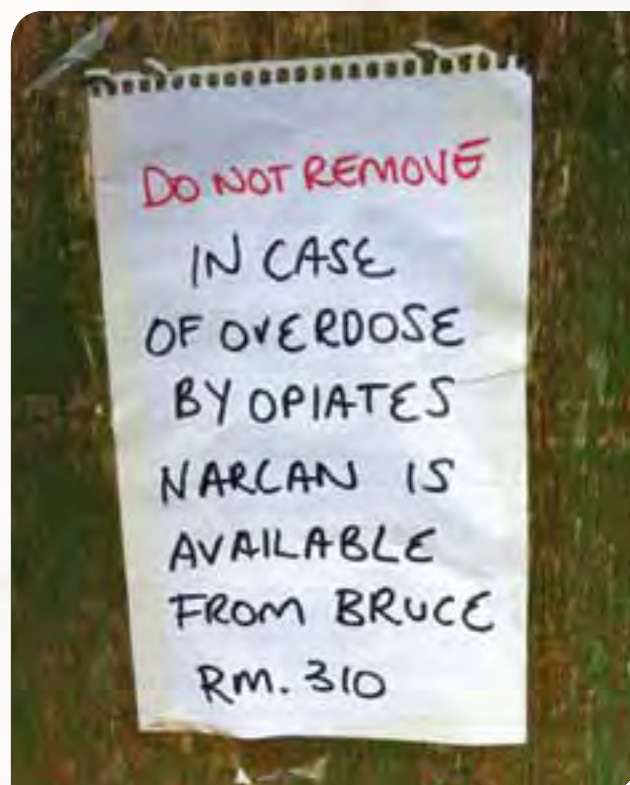 DO NOT REMOVE
IN CASE
OF OVERDOSE
BY OPIATES
NARCAN IS
AVAILABLE
FROM BRUCE
RM. 310